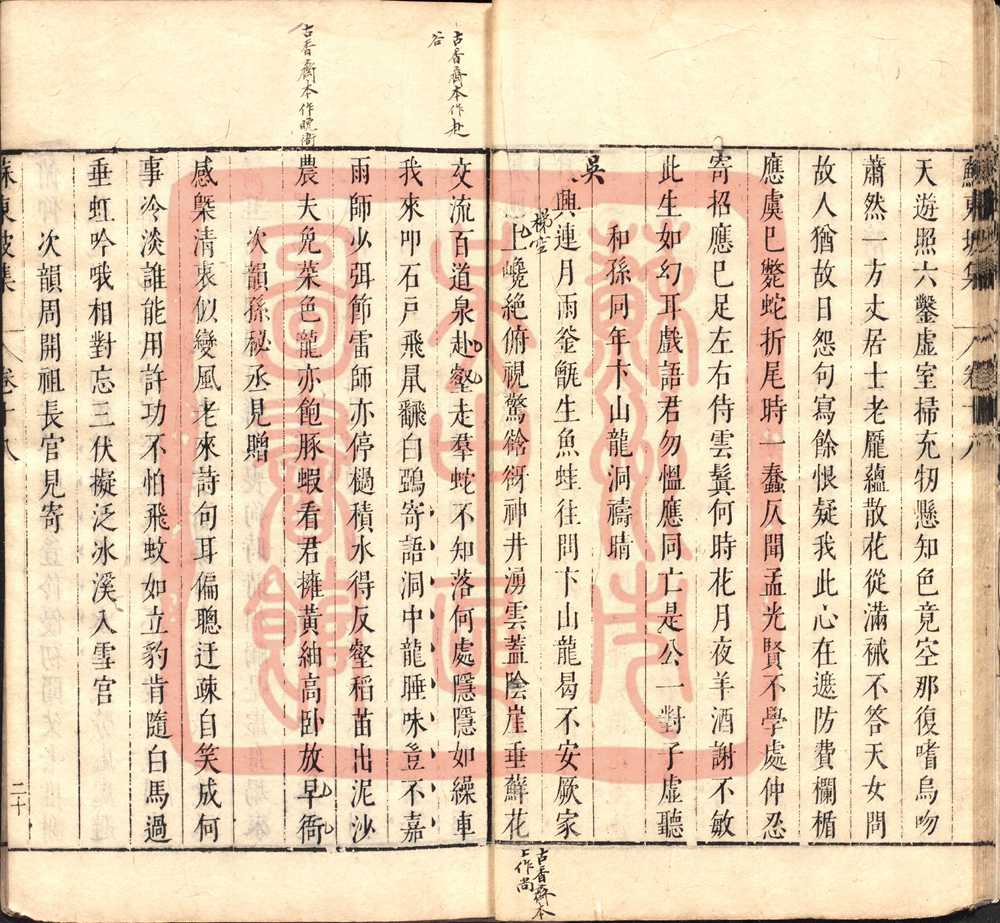 蘇東坡集 卷十八
天遊照六鑿虛室掃充牣懸知色竟空那復嗜烏吻
蕭然一方丈居士老龐蘊散花從滿裓不答天女問
故人猶故日怨句寫餘恨疑我此心在遮防費欄楯
應虞已斃蛇折尾時一蠢仄聞孟光賢不學處仲忍
寄招應已足左右侍雲鬟何時花月夜羊酒謝不敏
此生如幻耳戲語君勿慍應同亡是公一對子虛聽
和孫同年卞山龍洞禱晴
吳興連月雨釜甑生魚蛙往問卞山龍曷不安厥家
梯空上巉絕俯視驚谽谺神井湧雲蓋陰崖垂蘚花
交流百道泉赴壑走羣蛇不知落何處隱隱如繰車
我來叩石戶飛鼠翻白鴉寄語洞中龍睡味豈不嘉
雨師少弭節雷師亦停檛積水得反壑稻苗出泥沙
農夫免菜色龍亦飽豚蝦看君擁黃紬高臥放早衙
次韻孫秘丞見贈
感槩清哀似變風老來詩句耳偏聰迂疎自笑成何
事冷淡誰能用許功不怕飛蚊如立豹肯隨白馬過
垂虹吟哦相對忘三伏擬泛冰溪入雪宮
次韻周開祖長官見寄
蘇東坡集 卷十八 二十
古香齋本作赴谷
古香齋本作晚衙
古香齋本上作尚